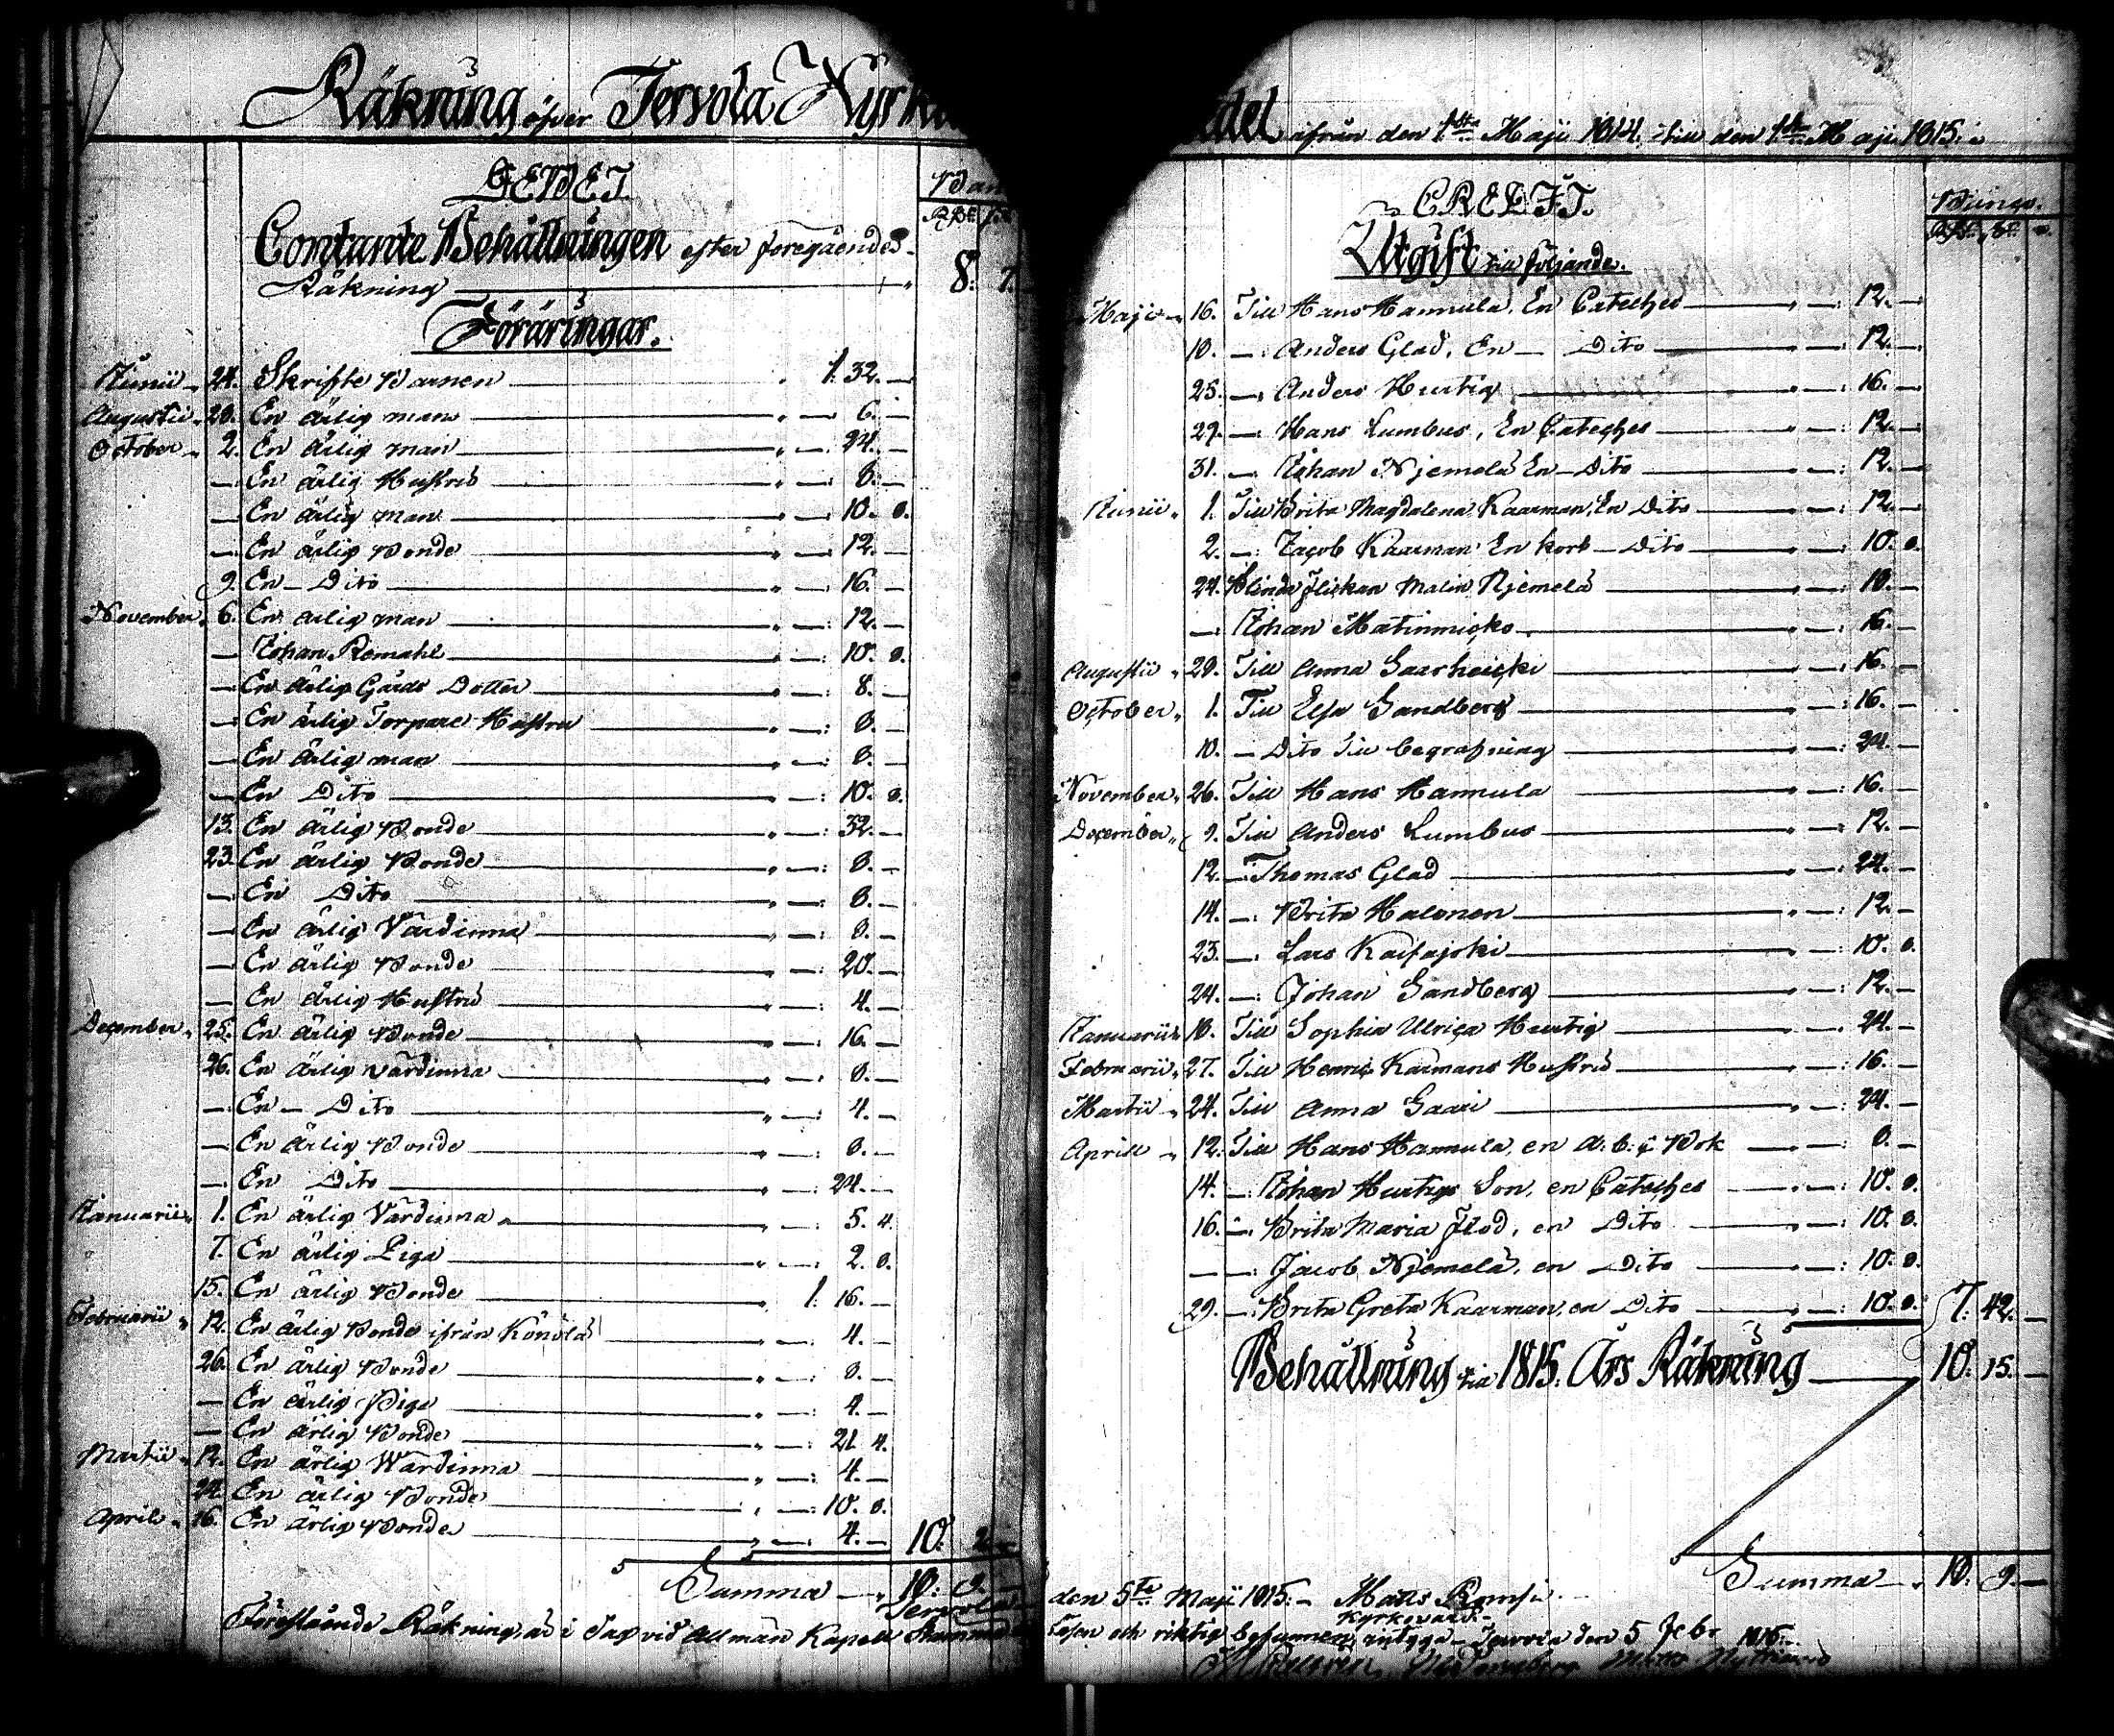 Räkning öfver Tervola Kyrk
DEBET.
Ban
Contante Behållningen efter föregåendes
Räkning 8. 7.
Föräringar.
Junii 24. Skrifte Barnen 1. 32. —
Augustii 28. En ärlig man — 6. —
October 2. En ärlig man — 24. —
— En ärlig Hustru — 8. —
— En ärlig man — 10. 8.
— En ärlig Bonde — 12. —
9. En Dito — 16. —
November 6. En ärlig man — 12. —
— Johan Romahl — 10. 8.
— En ärlig Gårds Dotter — 8. —
— En ärlig Torpare Hustru — 8. —
— En ärlig man — 8. —
— En Dito — 10. 8.
13. En ärlig Bonde — 32. —
23. En ärlig Bonde — 8. —
— En Dito — 8. —
— En ärlig Värdinna — 8. —
— En ärlig Bonde — 20. —
— En ärlig Hustru — 4. —
December 25. En ärlig Bonde — 16. —
26. En ärlig värdinna — 8. —
— En Dito — 4. —
— En ärlig Bonde — 8. —
— En Dito — 24. —
Januarii 1. En ärlig Värdinna — 5. 4.
7. En ärlig Piga — 2. 8.
15. En ärlig Bonde 1. 16. —
Februarii 12. En ärlig Bonde ifrån Könölä — 4. —
26. En ärlig Bonde — 8. —
— En ärlig Piga — 4. —
— En ärlig Bonde — 21. 4.
Martii 12. En ärlig Wärdinna — 4. —
24. En ärlig Bonde — 10. 8.
April 16. En ärlig Bonde — 4. — 10. 2. —
Summa 18. 9. —
Tervola
Föreslående Räkning, är i dag vid Allmän Kapell Stämma
edel ifrån den 1sta Maji 1814. till den 1sta Maji 1815.
CREDIT.
Bungo.
Utgift till följande.
Maji 16. Till Hans Hannula, En Cateches — 12. —
18. — Anders Glad, En Dito — 12. —
25. — Anders Hurtig — 16. —
29. — Hans Lumbus, En Cateches — 12. —
31. — Johan Njemelä En Dito — 12. —
Junii 1. Till Brita Magdalena Kaarman, En Dito — 12. —
2. — Jacob Kaarman En kort Dito — 10. 8.
24. Blinda flickan Malin Njemelä — 18. —
— Johan Matinmicko — 16. —
Augustii 28. Till Anna Saarheicki — 16. —
October 1. Till Elsa Sandberg — 16. —
10. — Dito till begrafning — 24. —
November 26. Till Hans Hannula — 16. —
December 9. Till Anders Lumbus — 12. —
12. — Thomas Glad — 24. —
14. — Brita Halonen — 12. —
23. — Lars Kaifajoki — 10. 8.
24. — Johan Sandberg — 12. —
Januarii 18. Till Sophia Ulrica Hurtig — 24. —
Februarii 27. Till Henric Karmans Hustru — 16. —
Martii 24. Till Anna Saari — 24. —
Aprill 12. Till Hans Hannula, en a: b: c Bok — 8. —
14. — Johan Hurtigs Son, en Cateches — 10. 8.
16. — Brita Maria Flod, en Dito — 10. 8.
— Jacob Njemelä, en Dito — 10. 8.
29. — Brita Greta Kaarman, en Dito — 10. 8. 7. 42. —
Behållning till 1815. Års Räkning 10. 15. —
Summa 18. 9. —
den 5te Maji 1815. Matts Romsi
Kyrkovärd.
läsen och riktig befunnen, intyga Tervola den 5 Febr 1816.